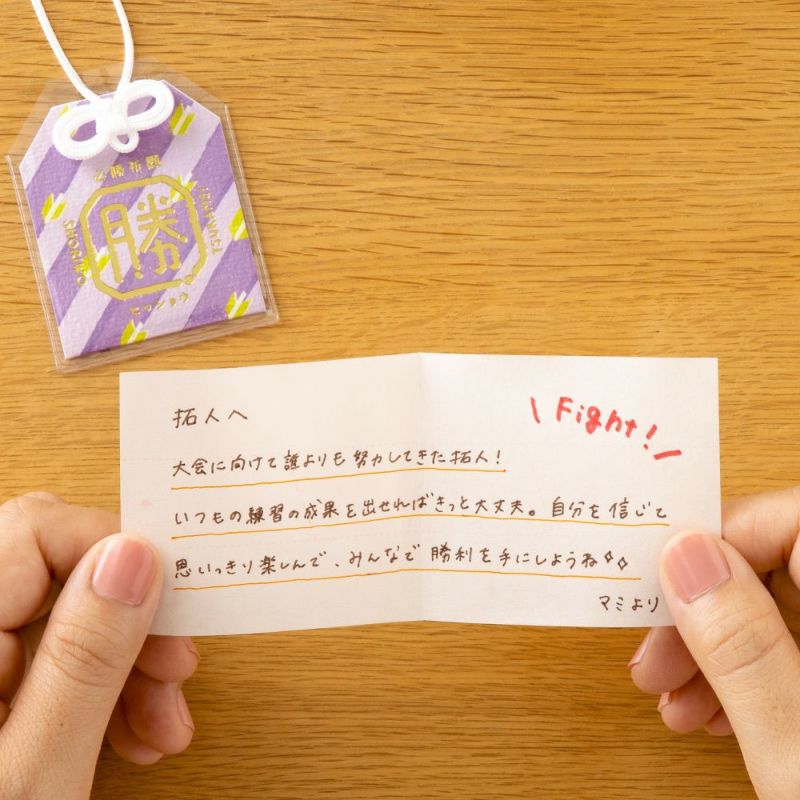 必勝祈願
勝
SHORIHO
ヒッショウ
拓人へ
\ Fight! /
大会に向けて誰よりも努力してきた拓人!
いつもの練習の成果を出せればきっと大丈夫。自分を信じて
思いっきり楽しんで、みんなで勝利を手にしようね
マミより